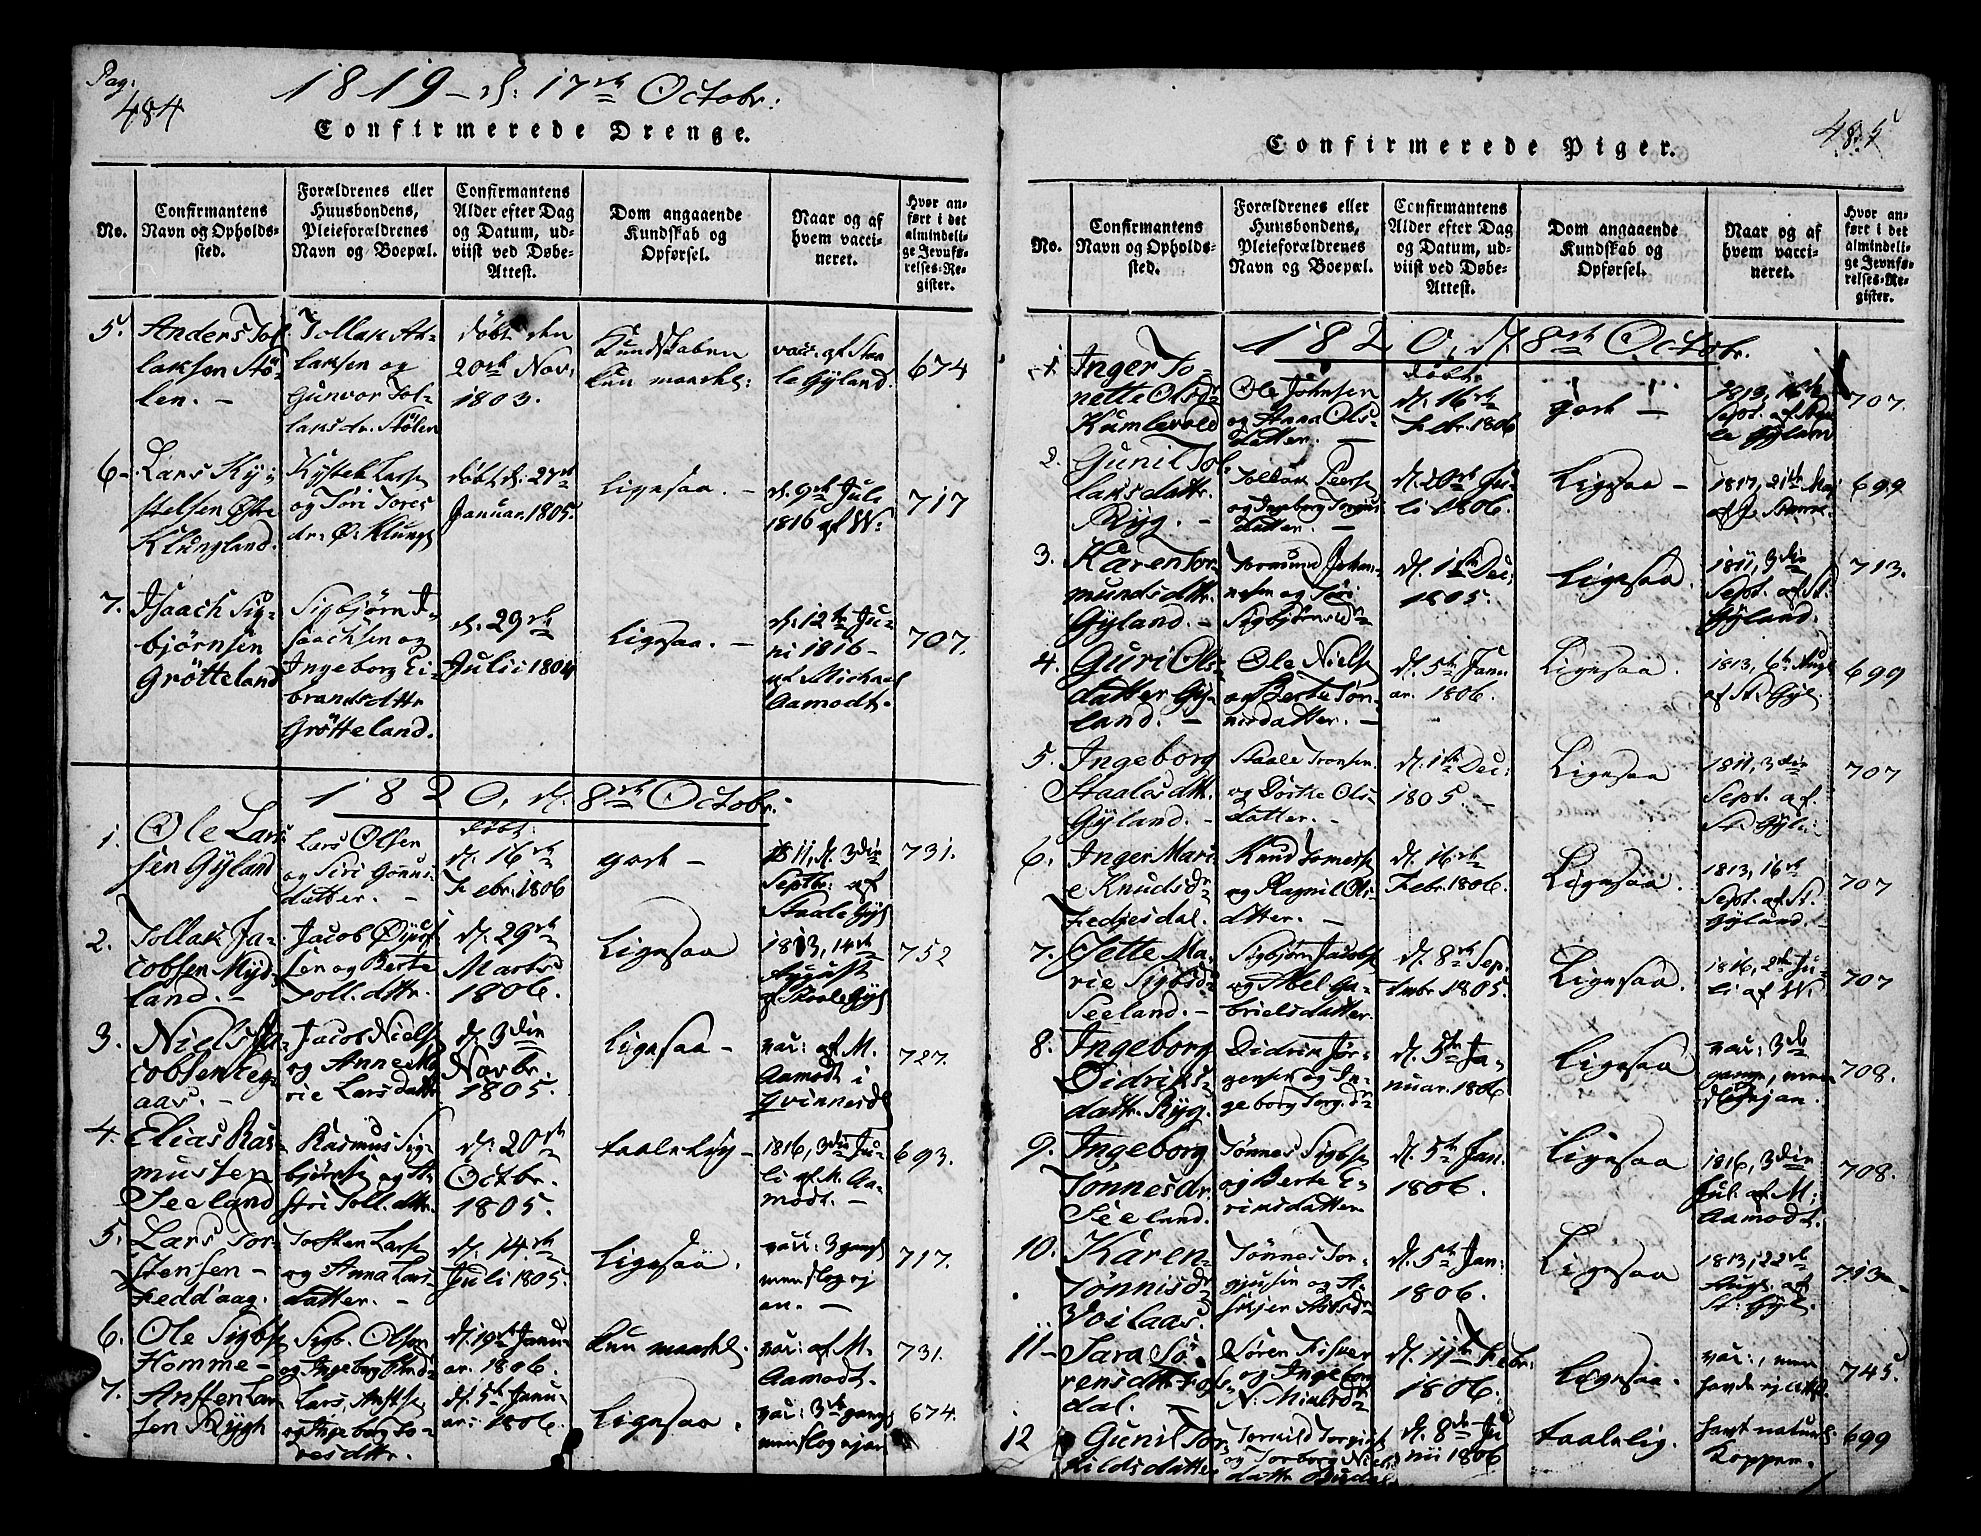 Pag:
484
1819 – d: 17de Octobr:
Confirmerede Drenge.
No.
Confirmantens Navn og Opholds-sted.
Forældrenes eller Huusbondens, Pleieforældrenes Navn og Boepæl.
Confirmantens Alder efter Dag og Datum, ud-viist ved Døbe-Attest.
Dom angaaende Kundskab og Opførsel.
Naar og af hvem vacci-neret.
Hvor an-ført i det almindeli-ge Jevnfø-relses-Re-gister.
5. Anders Tol-
laksen Stö-
len. –
Tollak At-
laksen og
Gunvor Tol-
laksdr. Stölen
döbt den
20de Nov:
1803.
Kundskaben
kun maadel:
vac: af Staa-
le Gyland.
674
6. Lars Ky-
stelsen Østre
Klungland.
Kystel Larss
og Töri Tores
dr: Ø: Klungl
döbt d: 27de
Januar. 1805.
Ligesaa. –
d. 9de Juli
1816 af W:
717
7. Isaach Sig-
björnsen
Grötteland
Sigbjörn I-
saachsen og
Ingeborg Ei-
brandsdttr
Grötteland.
d. 29de
Julii 1804
Ligesaa. –
d. 12te Ju-
ni 1816 –
af Michael
Aamodt.
707.
1820, d. 8de Octobr:
1. Ole Lars-
sen Gyland
Lars Olsen
og Siri Gunus-
datter. –
döbt:
d. 16de
Febr: 1806
god –
1811, d. 3die
Septbr: af
Staale Gyl
731.
2. Tollak Ja-
cobsen Myd-
land. –
Jacob Öyuf-
sen og Berte
Toll.dttr.
d. 29de
Marts
1806.
Ligesaa
1813, 14de
August
af Staale Gyl
752
3. Niels Ja-
cobsen Leg-
aas. –
Jacob Nielss
og Anne Ma-
rie Larsdattr
d. 3die
Novbr.
1805.
Ligesaa –
vac: af M.
Aamodt i
Qvinnesdl
727.
4. Elias Ras-
mussen
Seeland
Rasmus Sig-
björnss og A-
stri Toll.dttr.
d. 20de
Octbr.
1805.
taalelig –
1816, 3die Ju-
li af M. Aa-
modt. –
693.
5. Lars Tor-
stensen –
Fedd'aag.
Torsten Larss
og Anna Lars
datter. –
d. 14de
Juli 1805.
Ligesaa.
vac: 3 gange
men slog ej
an. –
717.
6. Ole Sigbss
Homme –
Sigb. Olsen
og Ingeborg
d. 19de Janu-
ar. 1806.
kun maadel.
vac: af M.
Aamodt.
731.
7. Ansten Lar-
sen Rygh
Lars Anstss
og Ingeborg To-
resdttr.
d. 5te Janu-
ar: 1806.
Ligesaa.
vac: 3de gange
men slog ej an
674.
485
Confirmerede Piger.
No.
Confirmantens Navn og Opholds-sted.
Forældrenes eller Huusbondens, Pleieforældrenes Navn og Boepæl.
Confirmantens Alder efter Dag og Datum, ud-viist ved Døbe-Attest.
Dom angaaende Kundskab og Opførsel.
Naar og af hvem vacci-neret.
Hvor an-ført i det almindeli-ge Jevnfø-relses-Re-gister.
1820, d. 8de Octobr.
1. Inger To-
nette Olsdr
Kumlevold
Ole Johnsen
og Anna Ols-
datter. –
döbt
d. 16de
Febr. 1806
god –
1813, 16de
Sept. af Staa-
le Gyland
707.
2. Gunil Tol-
laksdattr.
Ryg. –
Tollak Peerss
og Ingeborg Torgius
datter. –
d. 20de Ju-
li 1806.
Ligesaa –
1817, 21de Maj
af
699
3. Karen Tor-
mundsdttr.
Gyland. –
Tormund Johan-
nesen og Siri
Sigbjörnsdr
d. 1ste Dec:
1805.
Ligesaa.
1811, 3die
Sept. af St.
Gyland.
713.
4. Guri Ols-
datter Gy-
land. –
Ole Nielss
og Berte Tön-
nesdatter. –
d. 5te Janu-
ar. 1806.
Ligesaa.
1813, 6te Aug:
af St: Gyl:
699
5. Ingeborg
Staalesdttr.
Gyland. –
Staale Tronsen
og Dorthe Ols-
datter. –
d. 1ste Dec:
1805. –
Ligesaa
1811, 3die
Sept. af
St: Gyl:
707
6. Inger Mari-
e Knudsdr
Fedjesdal.
Knud Tomess
og Ragnil Ols-
datter. –
d. 16de
Febr. 1806.
Ligesaa.
1813, 16de
Sept. af St.
Gyland. –
707
7. Jette Ma-
rie Sigbsdr
Seeland. –
Sigbjörn Jacobss
og Abel Ga-
brielsdatter.
d. 8de Sep-
tembr. 1805.
Ligesaa.
1816, 2den Ju-
li af W.
707
8. Ingeborg
Didriks-
dattr. Ryg.
Didrik Jör-
gensen og In-
geborg Torg.dr
d. 5te Ja-
nuar. 1806.
Ligesaa
vac: 3de
gange, men
slog ej an.
708.
9. Ingeborg
Tönnesdr.
Seeland.
Tönnes Sigbss
og Berte E-
riksdatter
d. 5te Jan.
1806.
Ligesaa
1816, 3die
Jul. af M:
Aamodt.
708.
10. Karen
Tönnisdr
Voilaas.
Tönnes Tor-
gjusen og A-
d. 5te Jan:
1806.
Ligesaa
1813, 22de
Aug. af
St: Gyl.
713
11 – Sara Sö-
rensdttr
dal. –
Sören Fisker
og Ingeborg
d. 11te Febr:
1806.
Ligesaa.
vac:, men
havde ej Attst
745.
12 Gunil Tor-
kildsdatter
Torkild Torgiust
og Torborg Niels-
dattr
d. 8de Ju-
nii 1806
taalelig.
havt naturl:
Kopper.
699